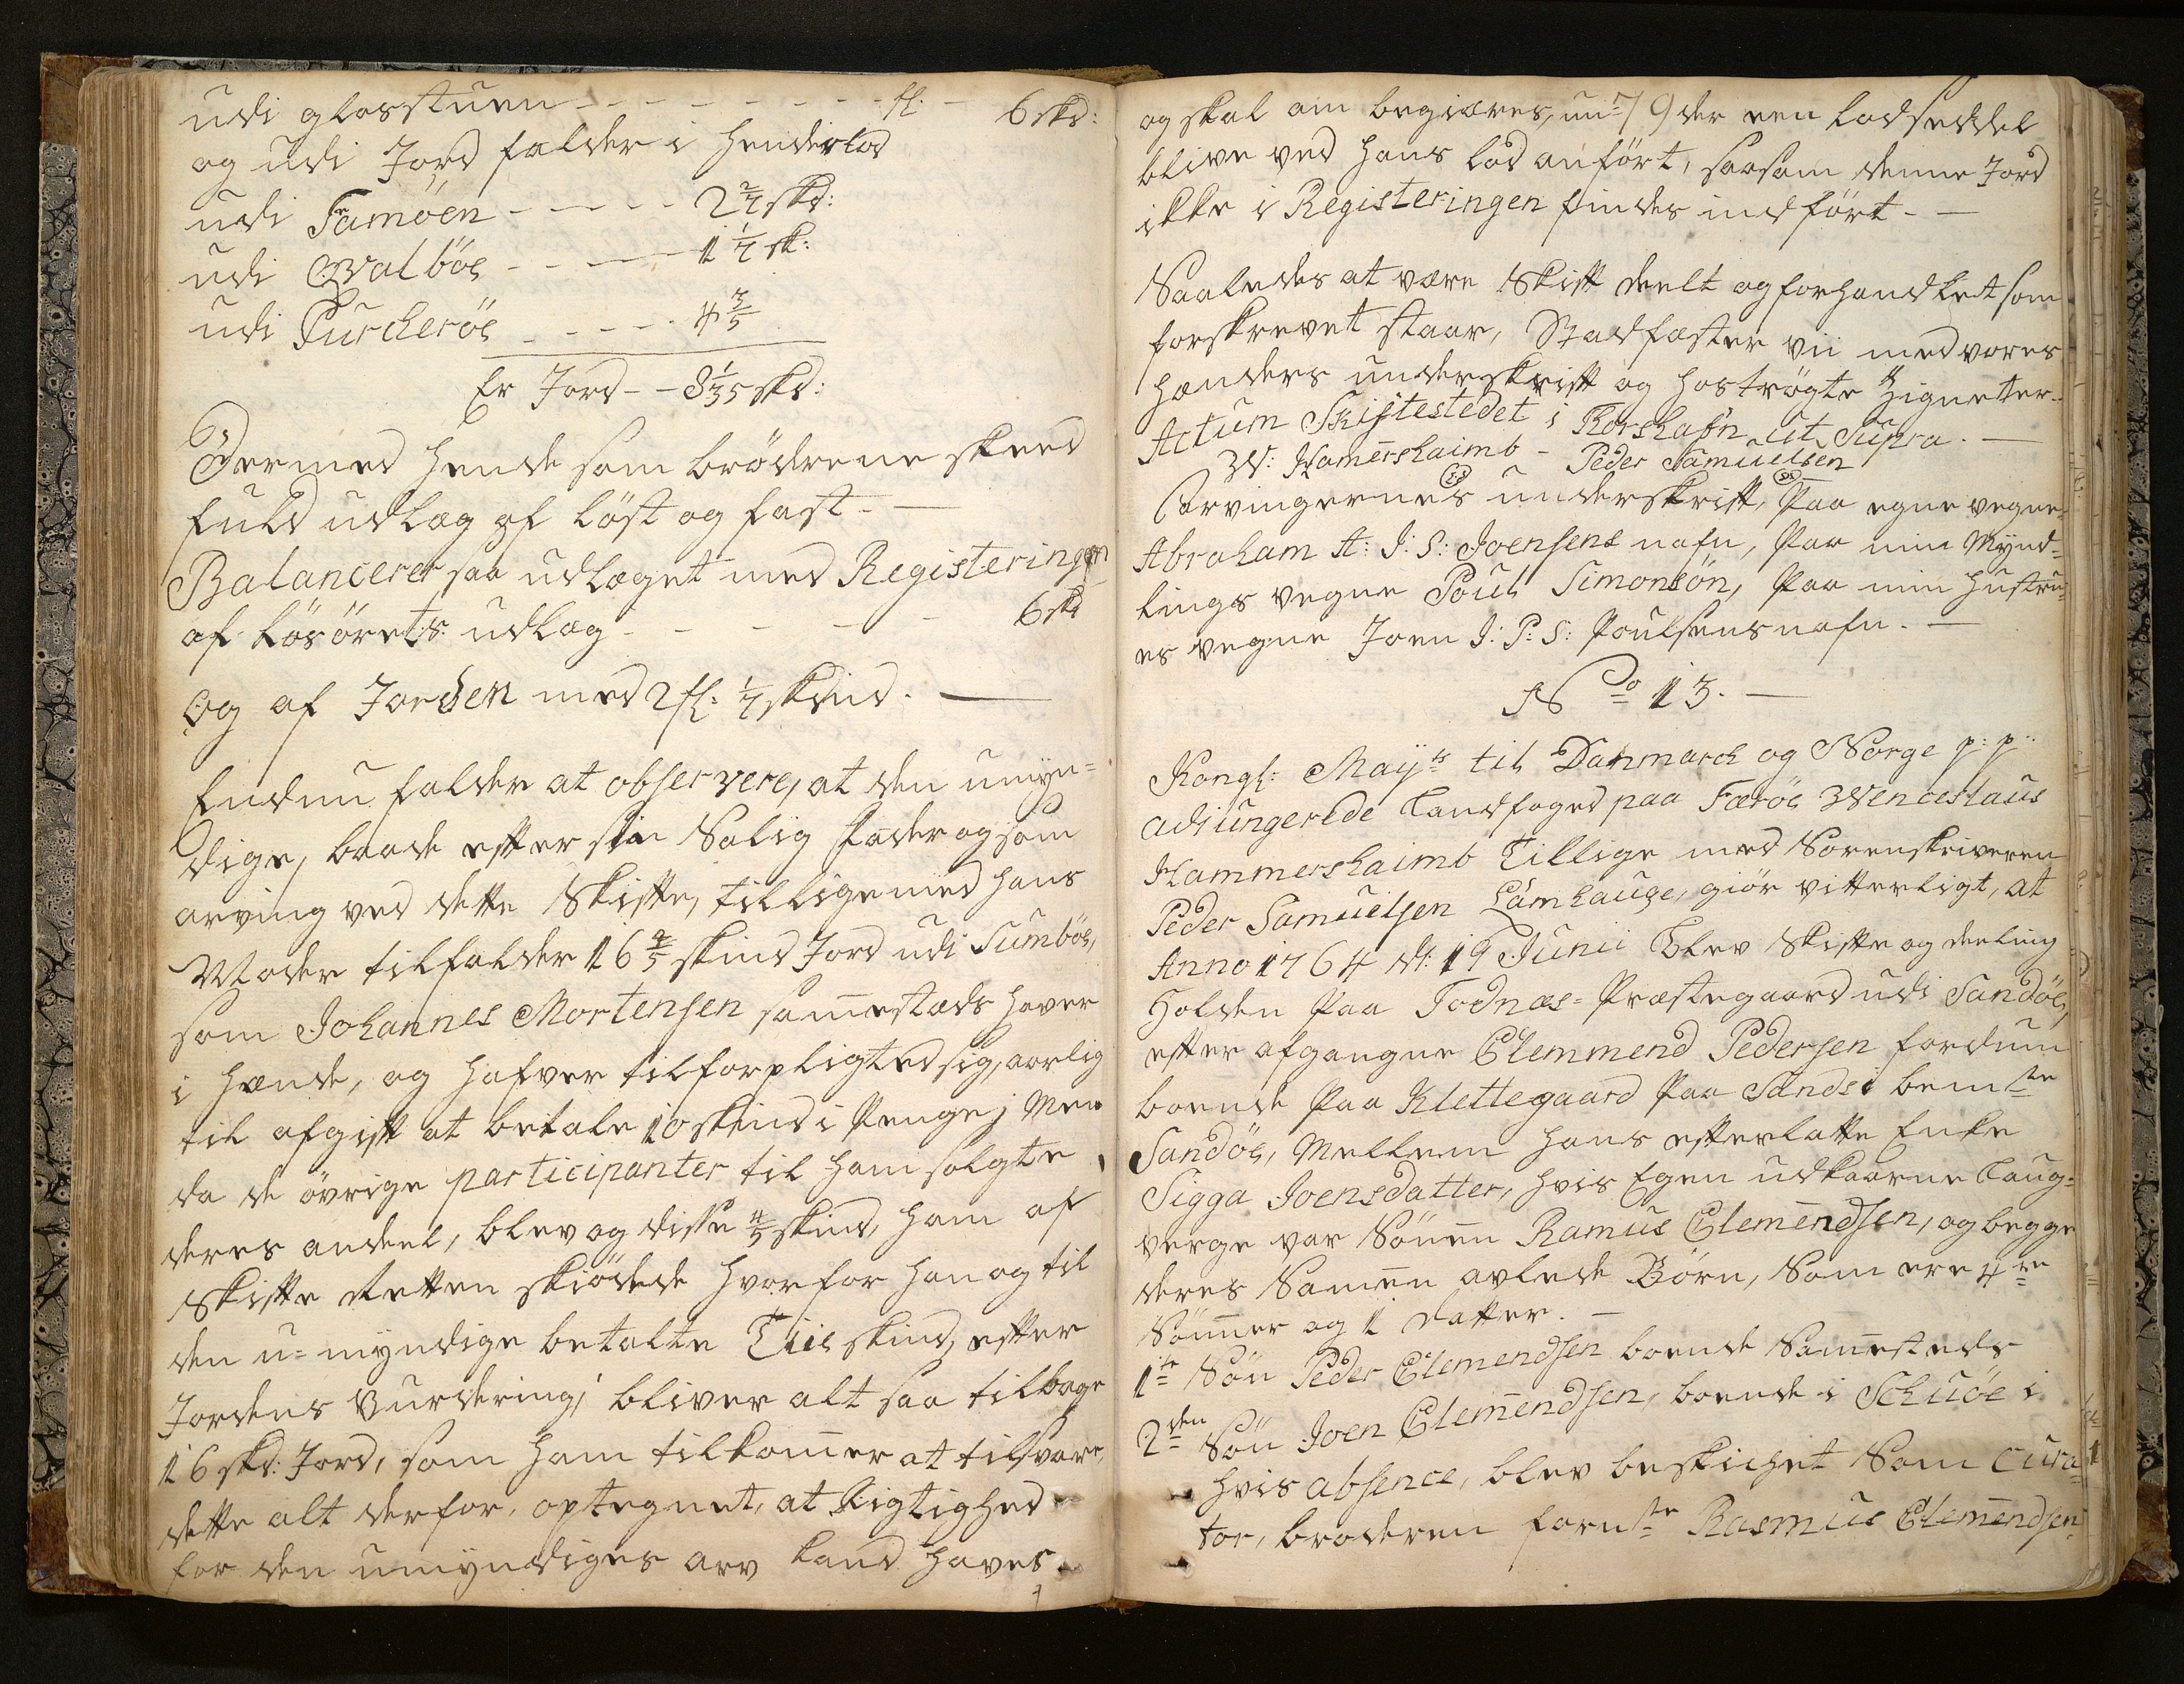 udi glosstuen - - - - - - - - fl. - 6 skd:
og udi Jord falder i Henderlod
udi Famöen - - - - - 2 2/7 skd:
udi Qvalböe - - - - 1 1/7 sk:
udi Purcheröe - - - - 4 3/5
Er Jord - - 8 1/35 skd:
Dermed hende som brödrene skeed
fuld udlæg af löst og fast. -
Balancerer saa udlæget med Registeringen
af Lösörets udlæg - - - - - - 6 sk
og af Jorden med 2 fl: 1/7 skind. -
Endnu falder at observere, at den umyn-
dige, baade efter sin Salig Fader og som
arving ved dette Skifte, tilligemed hans
Moder tilfalder 16 4/5 skind Jord udi Sumböe,
som Johannes Mortensen sammestæds haver
i hænde, og hafver tilforpligted sig, aarlig
til afgift at betale 10 skind i Penge; Men
da de övrige participanter til ham solgte
deres andeel, blev og disse 4/5 skind, ham af
Skifte Retten skiödede hvorfor han og til
den u-myndige betalte Tiie skind, efter
Jordens Vurdering; bliver alt saa tilbage
16 skd: Jord, som ham tilkommer at tilsvare,
dette alt derfor, optegnet, at Rigtighed
for den umyndiges arv kand haves
og skal om begiæres, un- 79 der een Lodseddel
blive ved hans lod anfört, saasom denne Jord
ikke i Registeringen findes indfört. -
Saaledes at være Skift deelt og forhandlet som
forskrevet staar, Stadfæster vii med vores
hænders underskrift og hoströgte Zigneter.
Actum Skiftestedet i Thorshafn ut Supra. -
W: Hamershaimb - Peder Samuelsen
Arvingernes underskrift, Paa egne vegne
Abraham A: I: S: Joensens nafn, Paa min Mynd-
lings vegne Poul Simonsön, Paa min Hustru-
es vegne Joen I: P: S: Poulsens nafn. -
No 13. -
Kongl: Mayts til Danmarck og Norge p: p:
adiungerede Landfoged paa Færöe Wenceslaus
Hammershaimb Tillige med Sorenskriveren
Peder Samuelsen Lamhauge, giör vitterligt, at
Anno 1764 d: 19 Junii Blev Skifte og deeling
Holden Paa Todnæs-Præstegaard udi Sandöe,
efter afgangne Clemmend Pedersen fordum
boende Paa Klettegaard Paa Sands i bemte
Sandöe, Mellem hans efterlatte Enke
Sigga Joensdatter, hvis Egen udkaarne Laug-
verge var Sönnen Ramus Clemendsen, og begge
deres Sammen avlede Börn, Som ere 4re
Sönner og 1 datter. -
1te Sön Peder Clemendsen boende Sammesteds
2den Sön Joen Clemendsen, boende i Schuöe i
hvis absence, blev beskichet Som Cura-
tor, broderen fornte Rasmus Clemendsen